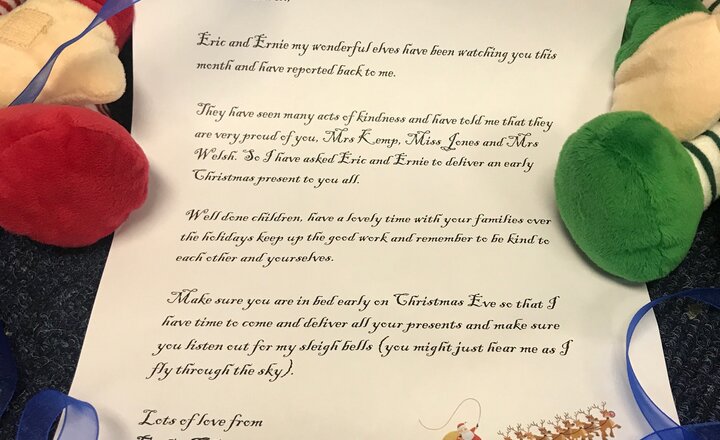 Eric and Ernie my wonderful elves have been watching you this
month and have reported back to me.
They have seen many acts of kindness and have told me that they
are very proud of you, Mrs Kemp, Miss Jones and Mrs
Welsh. So I have asked Eric and Ernie to deliver an early
Christmas present to you all.
Well done children, have a lovely time with your families over
the holidays keep up the good work and remember to be kind to
each other and yourselves.
Make sure you are in bed early on Christmas Eve so that I
have time to come and deliver all your presents and make sure
you listen out for my sleigh bells (you might just hear me as I
fly through the sky).
Lots of love from